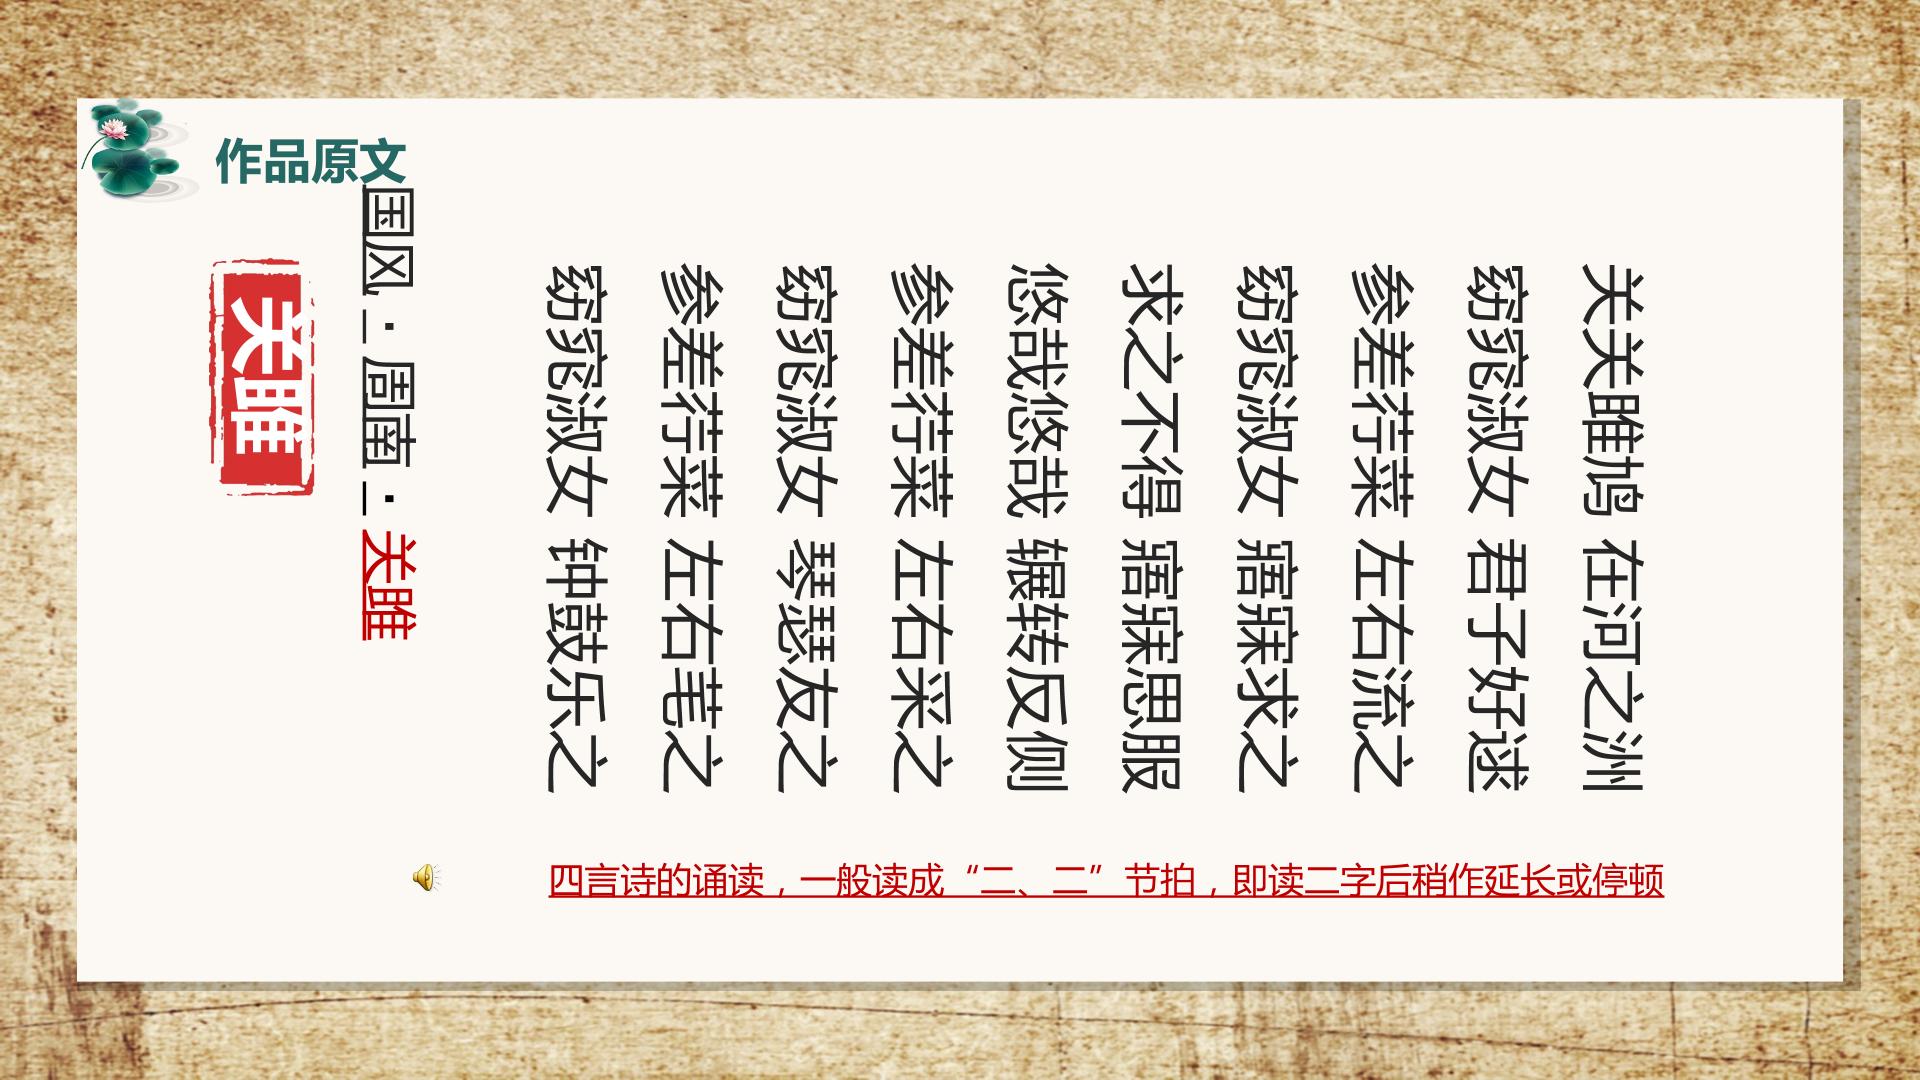 作品原文
关雎
国风·周南·关雎
关关雎鸠 在河之洲
窈窕淑女 君子好逑
参差荇菜 左右流之
窈窕淑女 寤寐求之
求之不得 寤寐思服
悠哉悠哉 辗转反侧
参差荇菜 左右采之
窈窕淑女 琴瑟友之
参差荇菜 左右芼之
窈窕淑女 钟鼓乐之
四言诗的诵读，一般读成“二、二”节拍，即读二字后稍作延长或停顿